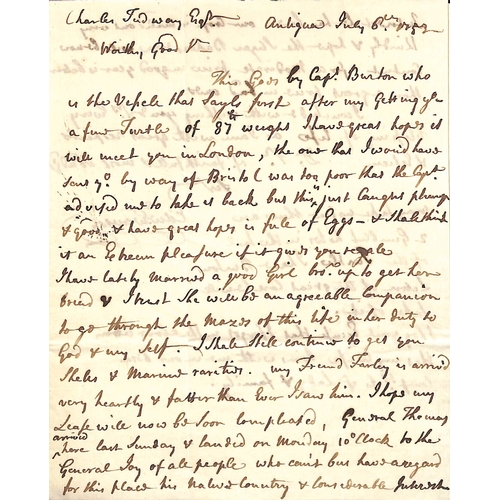 Charles Tudway Esqr Antigua July 6th
Worthy Good Sr
This Goes by Capt Burton who
is the Vessele that Sayls first after my Getting ye
a fine Turtle of 87 lb weight I have great hopes it
will meet you in London, the one that I would have
Sent yo by way of Bristol was too poor that the Capt
advised me to take it back but this just Caught plump
& good & have great hopes is full of Eggs - & Shale think
it an Extream pleasure if it gives you regale
I have lately married a good Girl bro. up to get her
Bread & I trust She will be an agreeable Companion
to go through the Mazes of this life in her duty to
God & my Self. I Shale Still continue to get you
Shels & Marine rarities. my Freind Farley is arriv'd
very hearty & fatter than Ever I saw him. I hope my
Lease will now be Soon compleated, General Thomas
arrived
here last Sunday & landed on Monday 10 oClock to the
General Joy of ale people who can't but have a regard
for this place his Native Country & Considerable Interest